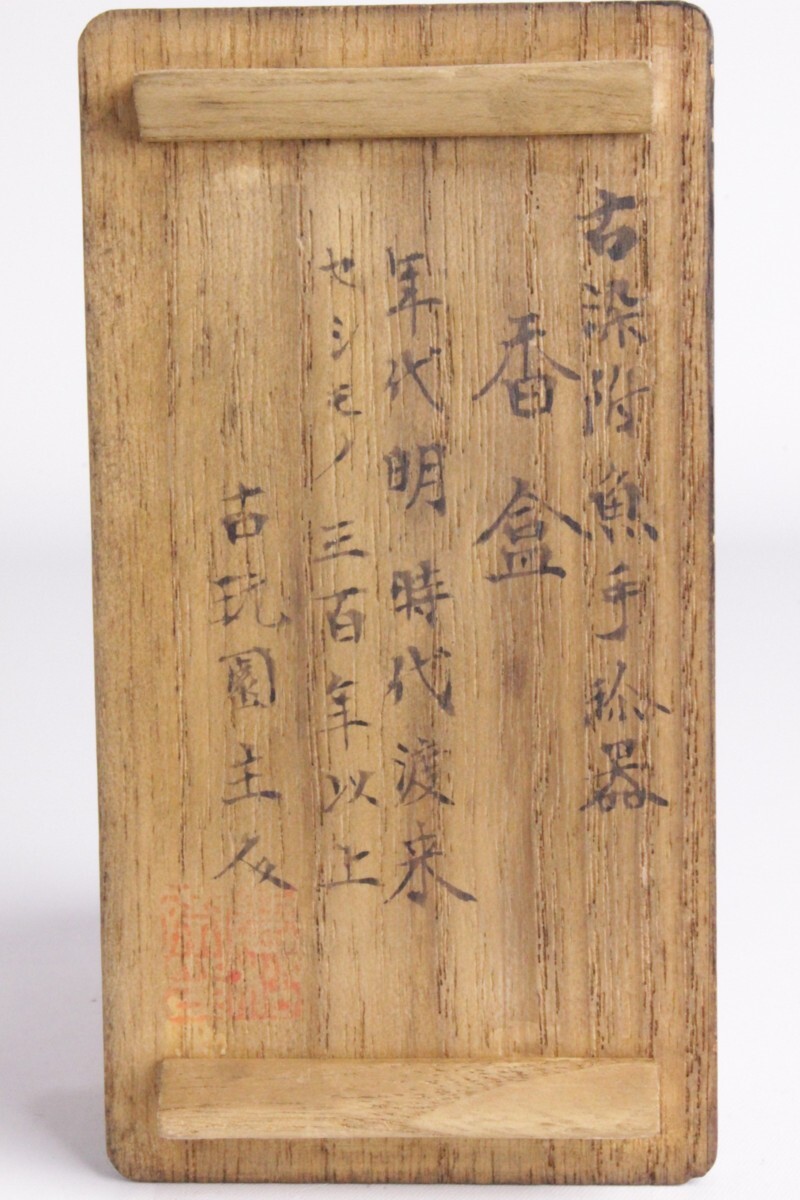 古染附魚手珎器
香盒
年代明時代渡来
セシモノ三百年以上
古玩園主人